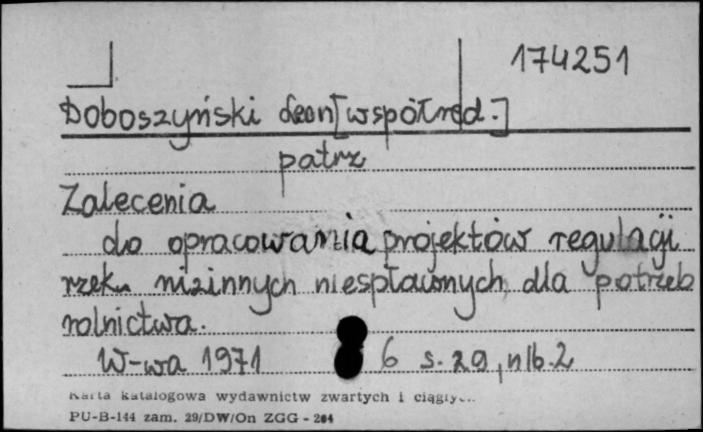 174251
Doboszyński Leon [współred.]
patrz
Zalecenia
do opracowania projektów regulacji
rzek nizinnych niespławnych, dla potrzeb
rolnictwa.
W-wa 1971 6 s. 29, nlb. 2
Karta katalogowa wydawnictw zwartych i ciągłych
PU-B-144 zam. 29/DW/On ZGG - 264